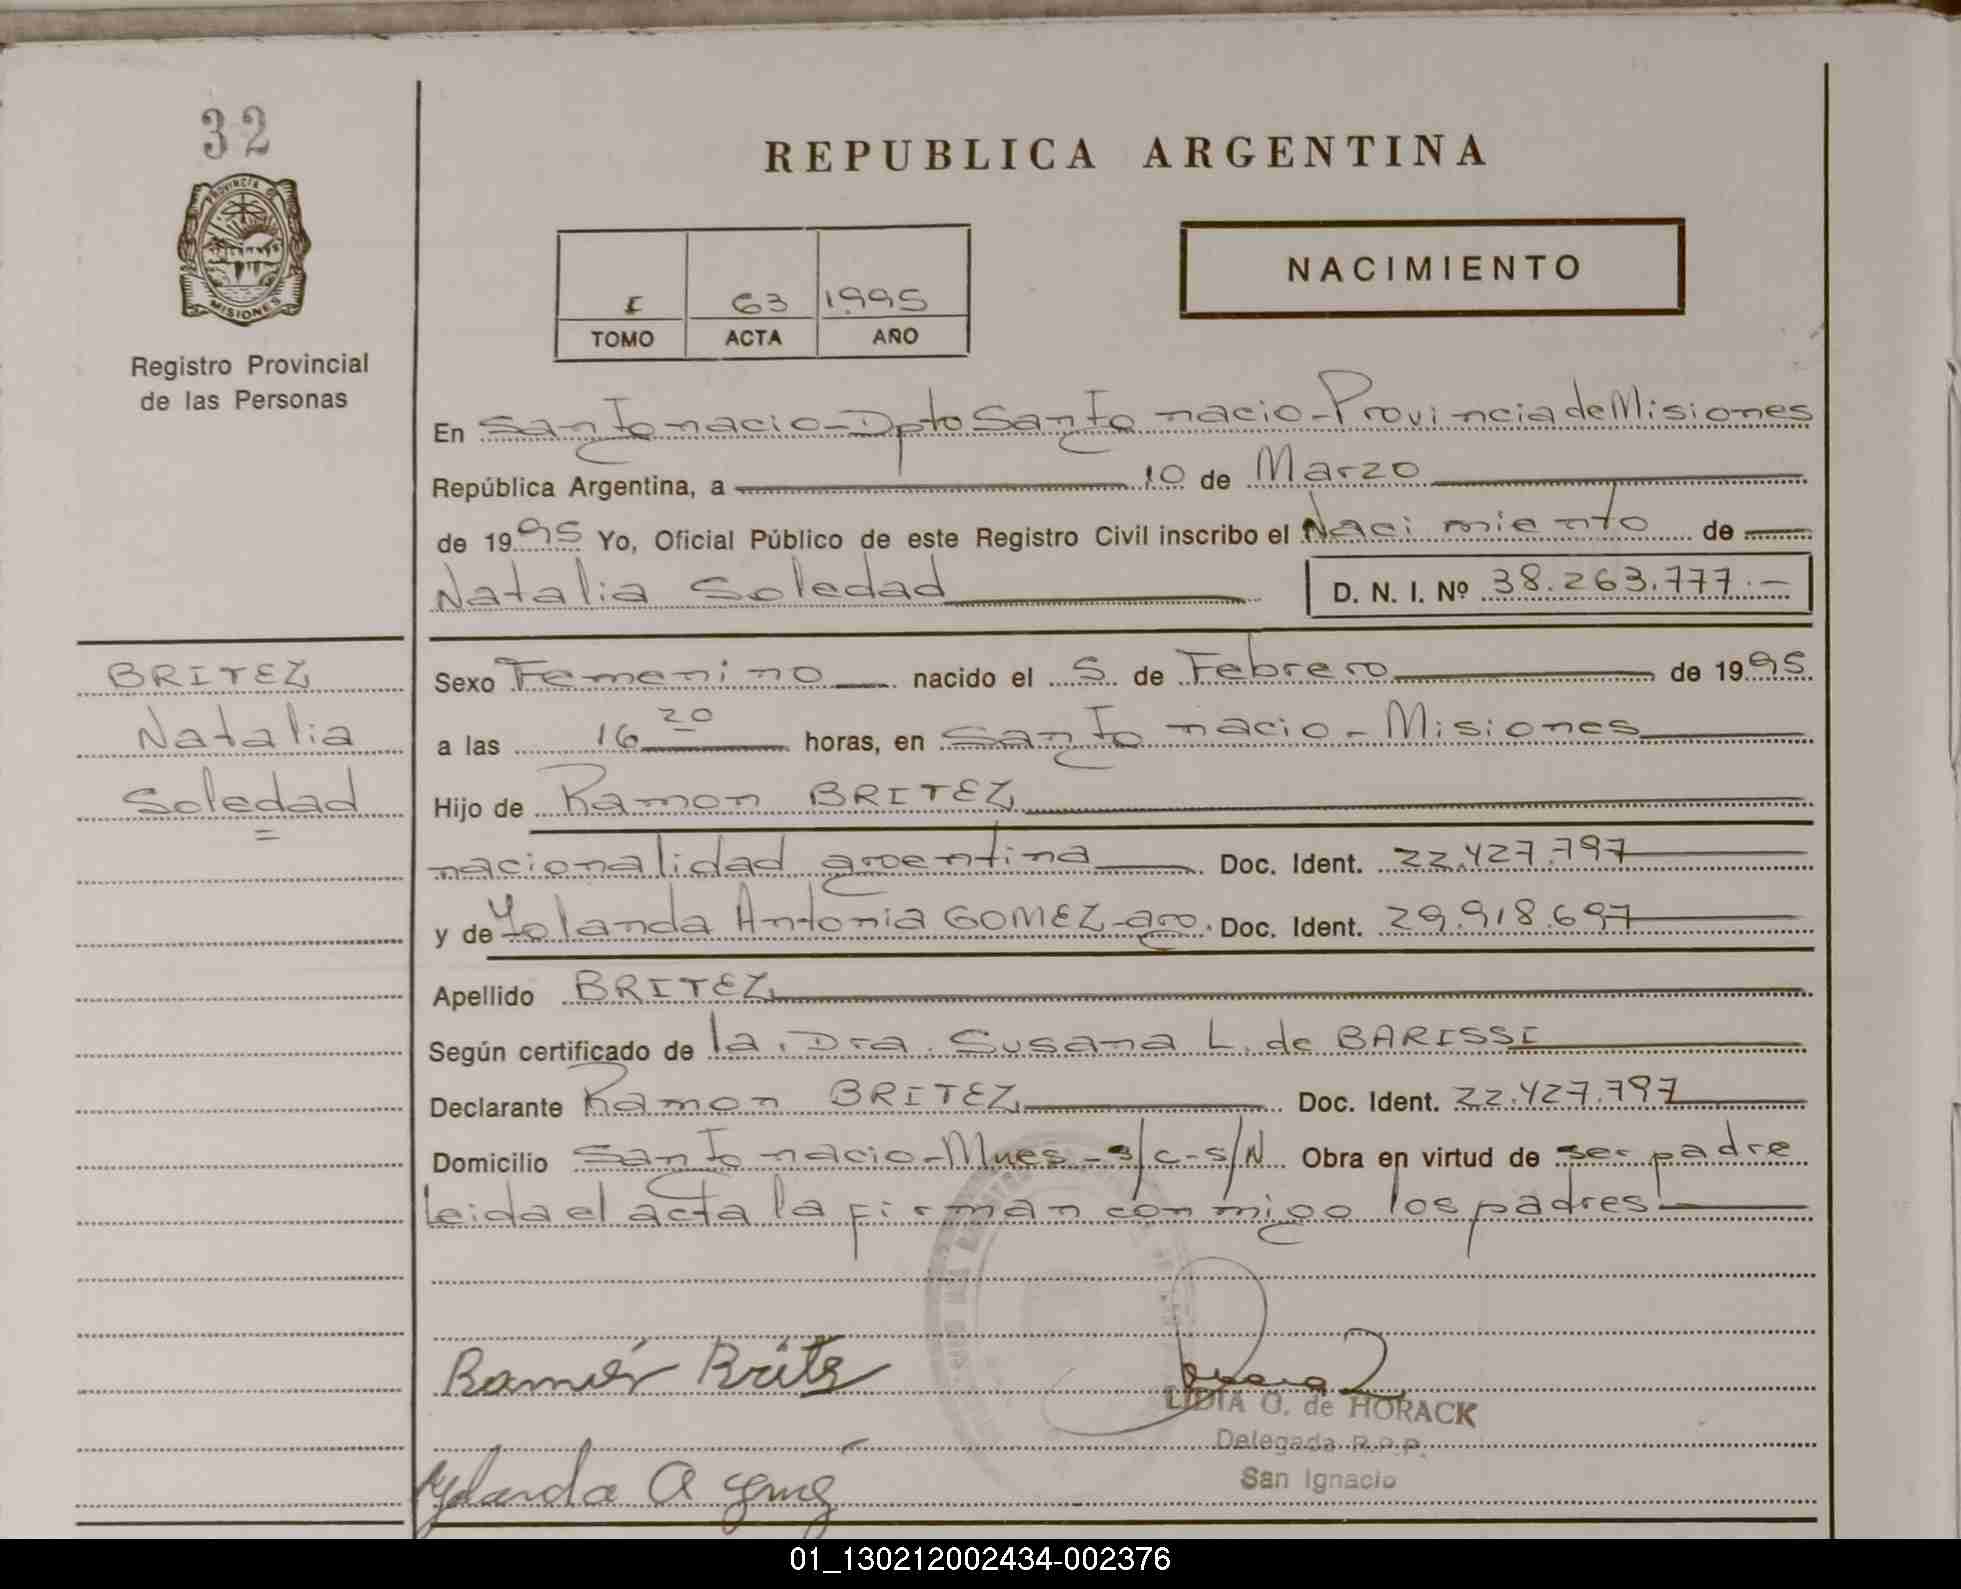 32
PROVINCIA DE
MISIONES
Registro Provincial
de las Personas
REPUBLICA ARGENTINA
NACIMIENTO
I 63 1995
TOMO ACTA AÑO
En San Ignacio - Dpto San Ignacio - Provincia de Misiones
República Argentina, a 10 de Marzo
de 1995 Yo, Oficial Público de este Registro Civil inscribo el Nacimiento de
Natalia Soledad D. N. I. Nº 38.263.777.-
BRITEZ
Natalia
Soledad
=
Sexo Femenino nacido el 5 de Febrero de 1995
a las 16 20 horas, en San Ignacio - Misiones
Hijo de Ramon BRITEZ
nacionalidad argentina Doc. Ident. 22.427.797
y de Yolanda Antonia GOMEZ - arg. Doc. Ident. 29.918.697
Apellido BRITEZ
Según certificado de la Dra. Susana L. de BARISSI
Declarante Ramon BRITEZ Doc. Ident. 22.427.797
Domicilio San Ignacio - Mnes - s/c - s/N Obra en virtud de ser padre
leida el acta la firman conmigo los padres
Ramón Britez
LIDIA O. de HORACK
Delegada R.P.P.
San Ignacio
Yolanda A
01_130212002434-002376